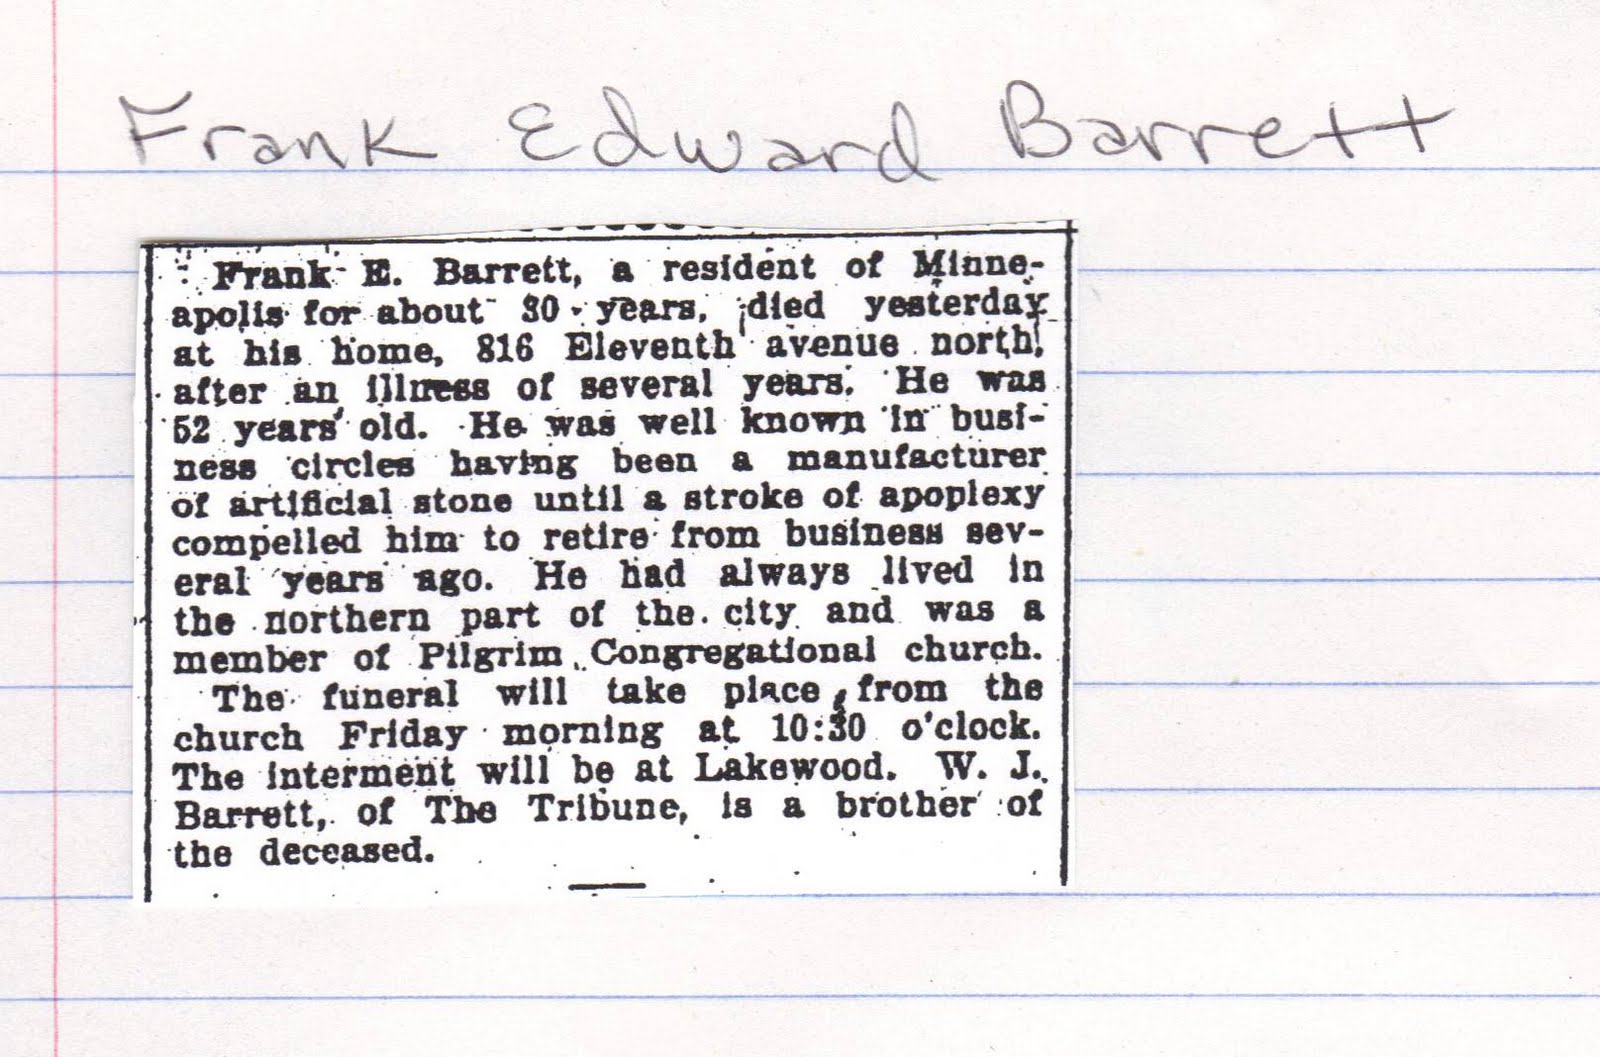 Frank Edward Barrett
Frank E. Barrett, a resident of Minne-
apolis for about 30 years, died yesterday
at his home, 816 Eleventh avenue north,
after an illness of several years. He was
52 years old. He was well known in busi-
ness circles having been a manufacturer
of artificial stone until a stroke of apoplexy
compelled him to retire from business sev-
eral years ago. He had always lived in
the northern part of the city and was a
member of Pilgrim Congregational church.
The funeral will take place from the
church Friday morning at 10:30 o'clock.
The interment will be at Lakewood. W. J.
Barrett, of The Tribune, is a brother of
the deceased.